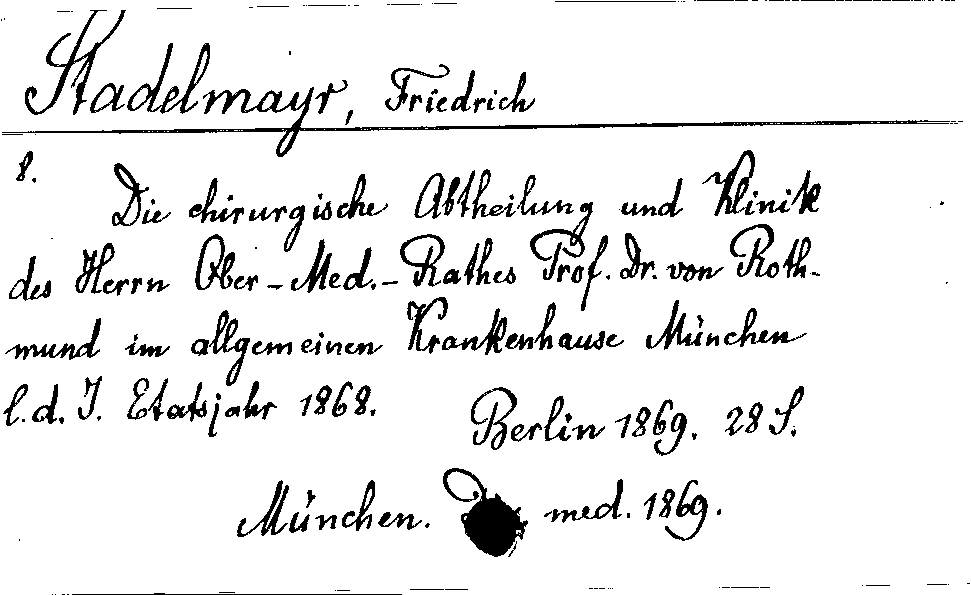 Stadelmayr, Friedrich
8.
Die chirurgische Abtheilung und Klinik
des Herrn Ober-Med.-Rathes Prof. Dr. von Roth-
mund im allgemeinen Krankenhause München
l. d. J. Etatsjahr 1868.
Berlin 1869. 28 S.
München. med. 1869.